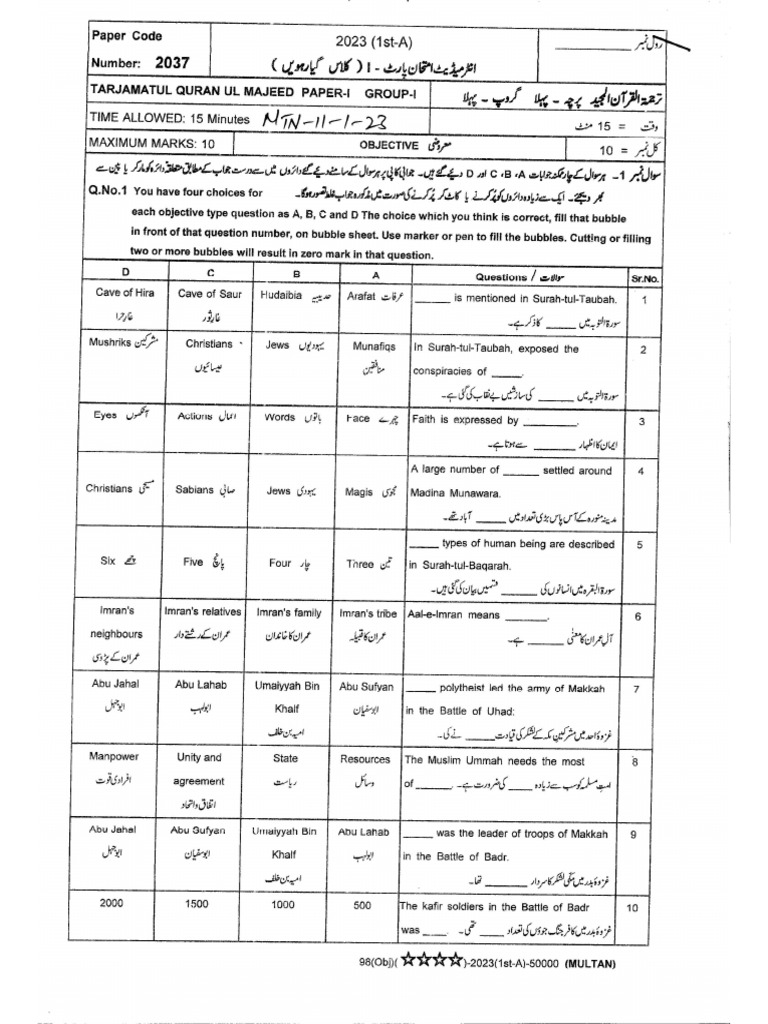 Paper Code
2023 (1st-A)
رول نمبر ________
Number: 2037
انٹرمیڈیٹ امتحان پارٹ - I ( کلاس گیارھویں )
TARJAMATUL QURAN UL MAJEED PAPER-I GROUP-I
ترجمۃ القرآن المجید پرچہ - پہلا گروپ - پہلا
TIME ALLOWED: 15 Minutes
MTN-11-1-23
وقت = 15 منٹ
MAXIMUM MARKS: 10
OBJECTIVE معروضی
کل نمبر = 10
سوال نمبر 1- ہر سوال کے چار ممکنہ جوابات A، B، C اور D دیے گئے ہیں۔ جوابی کاپی پر ہر سوال کے سامنے دیے گئے دائروں میں سے درست جواب کے مطابق متعلقہ دائرہ کو مارکر یا پین سے
بھر دیجئے۔ ایک سے زیادہ دائروں کو پُر کرنے یا کاٹ کر پُر کرنے کی صورت میں مذکورہ جواب غلط تصور ہوگا۔
Q.No.1 You have four choices for
each objective type question as A, B, C and D The choice which you think is correct, fill that bubble
in front of that question number, on bubble sheet. Use marker or pen to fill the bubbles. Cutting or filling
two or more bubbles will result in zero mark in that question.
D C B A Questions / سوالات Sr.No.
Cave of Hira Cave of Saur Hudaibia حدیبیہ Arafat عرفات ______ is mentioned in Surah-tul-Taubah. 1
غارِ حرا غارِ ثور سورۃ التوبہ میں ______ کا ذکر ہے۔
Mushriks مشرکین Christians Jews یہودیوں Munafiqs In Surah-tul-Taubah, exposed the 2
عیسائیوں منافقین conspiracies of _____.
سورۃ التوبہ میں ______ کی سازشیں بے نقاب کی گئی ہے۔
Eyes آنکھوں Actions اعمال Words باتوں Face چہرے Faith is expressed by _________. 3
ایمان کا اظہار ________ سے ہوتا ہے۔
A large number of ______ settled around 4
Christians مسیحی Sabians صابی Jews یہودی Magis مجوسی Madina Munawara.
مدینہ منورہ کے آس پاس بڑی تعداد میں _____ آباد تھے۔
_____ types of human being are described 5
Six چھے Five پانچ Four چار Three تین in Surah-tul-Baqarah.
سورۃ البقرہ میں انسانوں کی ______ قسمیں بیان کی گئی ہیں۔
Imran's Imran's relatives Imran's family Imran's tribe Aal-e-Imran means _______. 6
neighbours عمران کے رشتے دار عمران کا خاندان عمران کا قبیلہ آلِ عمران کا معنیٰ ______ ہے۔
عمران کے پڑوسی
Abu Jahal Abu Lahab Umaiyyah Bin Abu Sufyan _____ polytheist led the army of Makkah 7
ابوجہل ابولہب Khalf ابوسفیان in the Battle of Uhad:
امیہ بن خلف غزوۂ احد میں مشرکین مکہ کے لشکر کی قیادت _____ نے کی۔
Manpower Unity and State Resources The Muslim Ummah needs the most 8
افرادی قوت agreement ریاست وسائل of ______. امتِ مسلمہ کو سب سے زیادہ ____ کی ضرورت ہے۔
اتفاق و اتحاد
Abu Jahal Abu Sufyan Umaiyyah Bin Abu Lahab _____ was the leader of troops of Makkah 9
ابوجہل ابوسفیان Khalf ابولہب in the Battle of Badr.
امیہ بن خلف غزوۂ بدر میں مکی لشکر کا سردار ________ تھا۔
2000 1500 1000 500 The kafir soldiers in the Battle of Badr 10
was _____ غزوۂ بدر میں کافر جنگ جوؤں کی تعداد ____ تھی۔
98(Obj)(☆☆☆☆)-2023(1st-A)-50000 (MULTAN)